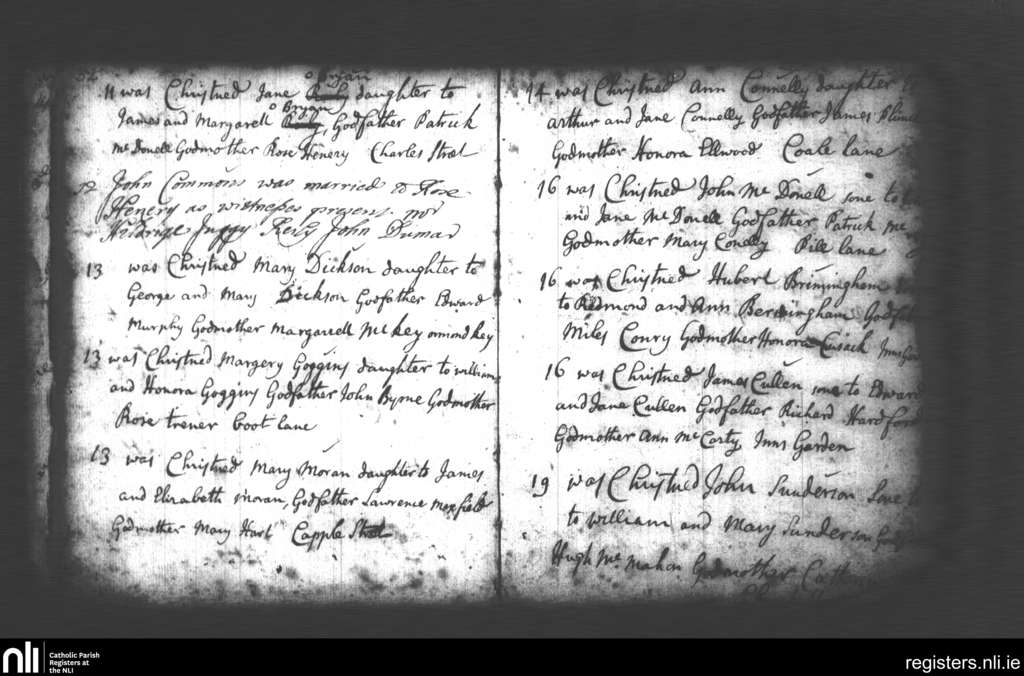 o Bryan
11 was Christned Jane daughter to
o Bryan
James and Margarett Godfather Patrick
Mc Donell Godmother Rose Henery Charles Street
12 John Commons was married to Rose
Henery as witnesses present
John Dumar
13 was Christned Mary Dickson daughter to
George and Mary Dickson Godfather Edward
Murphy Godmother Margarett Mc key ormond key
13 was Christned Margery Goggins daughter to william
and Honora Goggins Godfather John Byrne Godmother
Rose trener boot lane
13 was Christned Mary Moran daughter to James
and Elizabeth moran, Godfather Lawrence Moxfield
Godmother Mary Hart Capple Street
14 was Christned Ann Connelly daughter
arthur and Jane Connelly Godfather James
Godmother Honora Ellwood Coale lane
16 was Christned John Mc Donell sone to
and Jane Mc Donell Godfather Patrick Mc
Godmother Mary Conelly Pill lane
16 was Christned Hubert Briminghem
to Redmond and Ann Bermingham Godfather
Miles Conry Godmother Honora Cusack Inns
16 was Christned James Cullen sone to Edward
and Jane Cullen Godfather Richard Hardford
Godmother Ann Mc Carty Inns Garden
19 was Christned John Sunderson Sone
to william and Mary Sunderson
Hugh Mc mahon Godmother
nli
Catholic Parish
Registers at
the NLI
registers.nli.ie